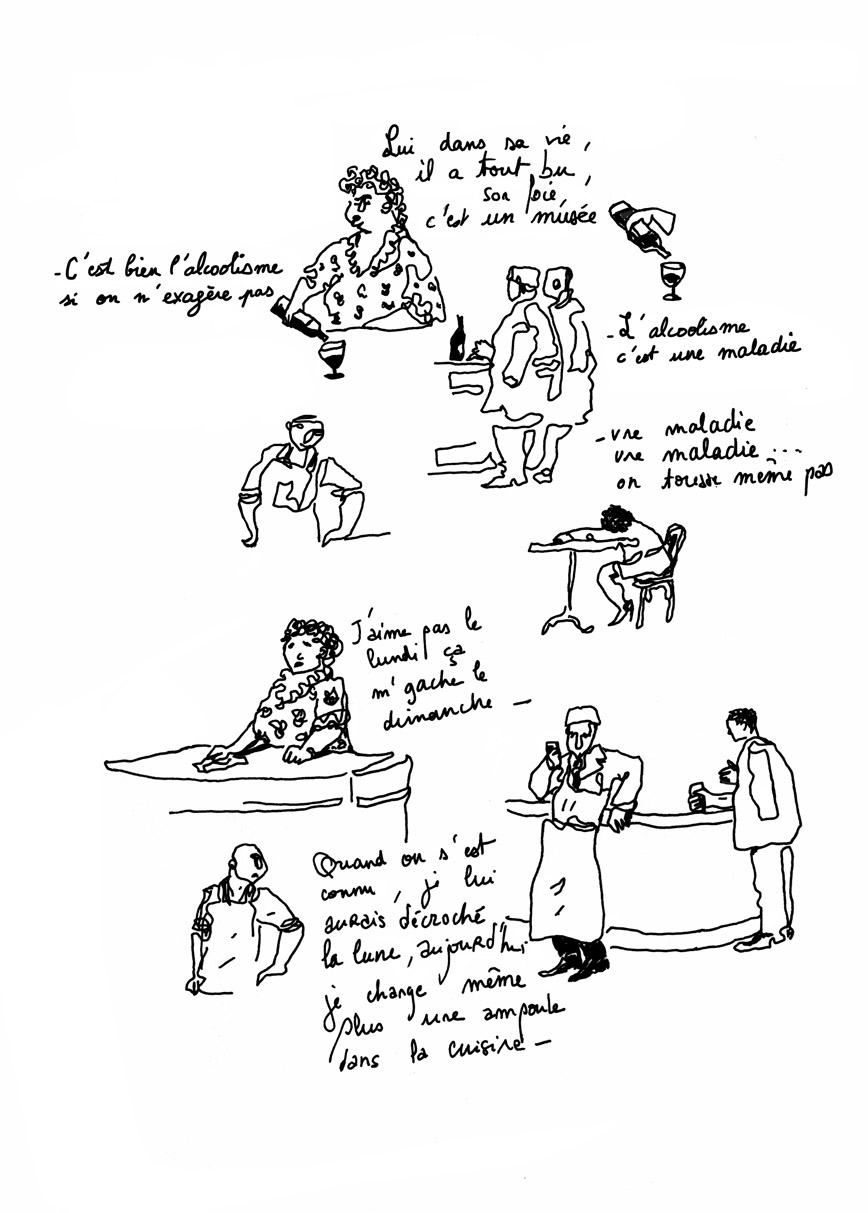 Lui dans sa vie,
il a tout bu,
son foie,
c'est un musée
- C'est bien l'alcoolisme
si on n'exagère pas
- L'alcoolisme
c'est une maladie
- une maladie
une maladie ...
on tousse même pas
J'aime pas le
lundi ça
m'gache le
dimanche -
Quand on s'est
connu, je lui
aurais décroché
la lune, aujourd'hui
je change même
plus une ampoule
dans la cuisine -